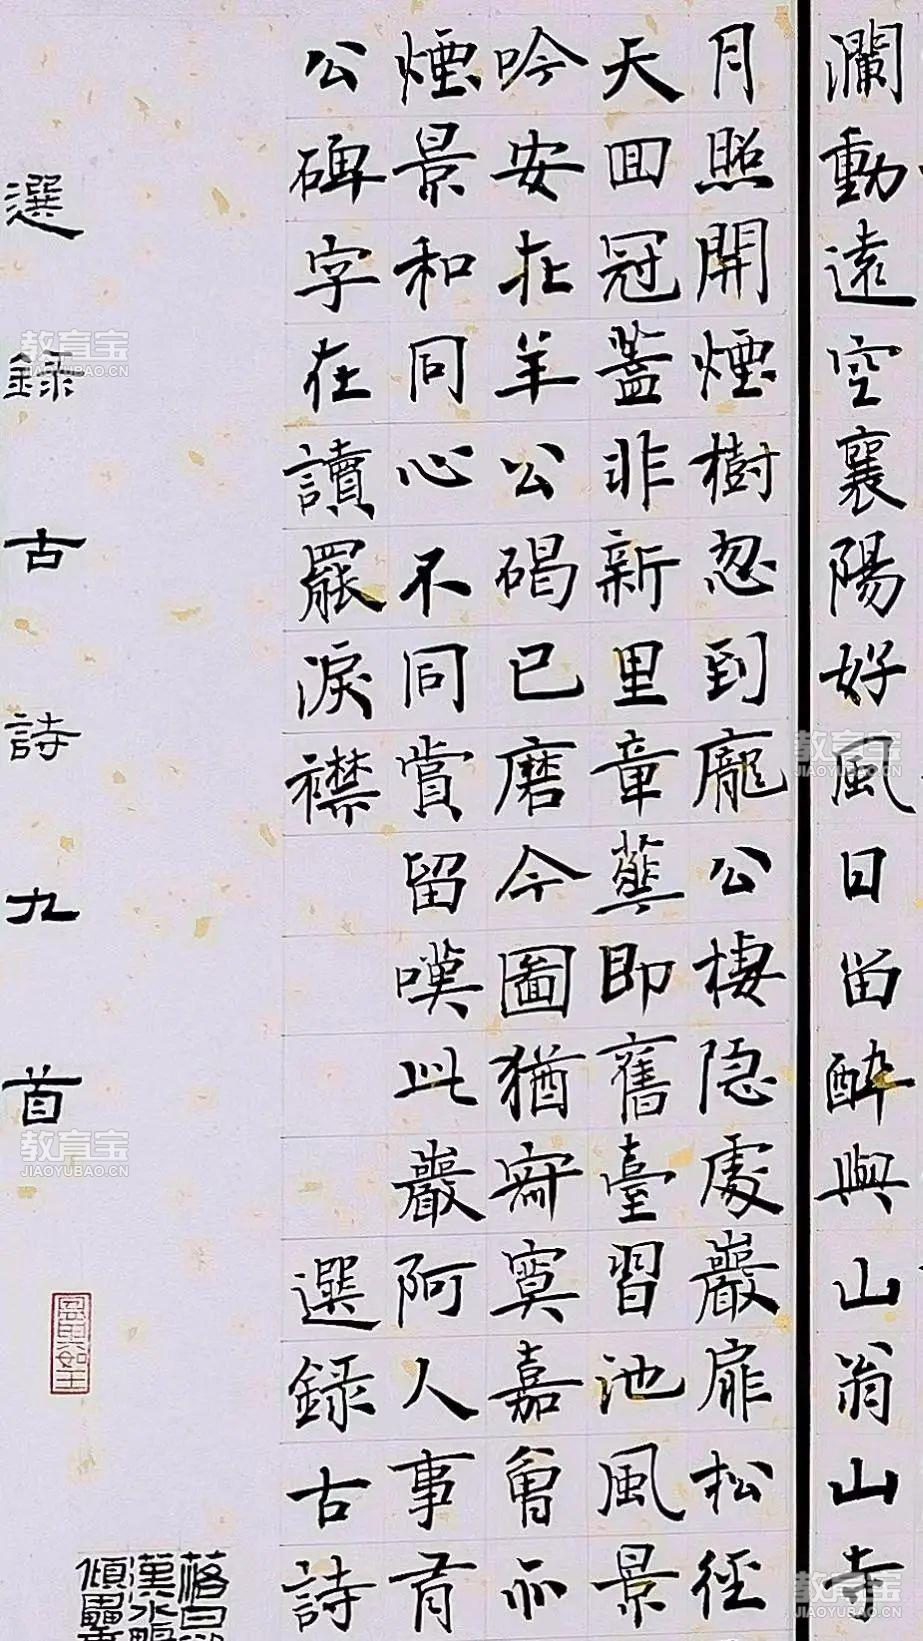 瀾動遠空襄陽好風日留醉與山翁山寺
月照開煙樹忽到龐公棲隱處巖扉松徑
天回冠蓋非新里章華即舊臺習池風景
吟安在羊公碣已磨今圖猶寂寞嘉會亦
煙景和同心不同賞留嘆此巖阿人事有
公碑字在讀罷淚襟 選錄古詩
選錄古詩九首
教育宝
JIAOYUBAO.CN
教育宝
JIAOYUBAO.CN
教育宝
JIAOYUBAO.CN
教育宝
JIAOYUBAO.CN